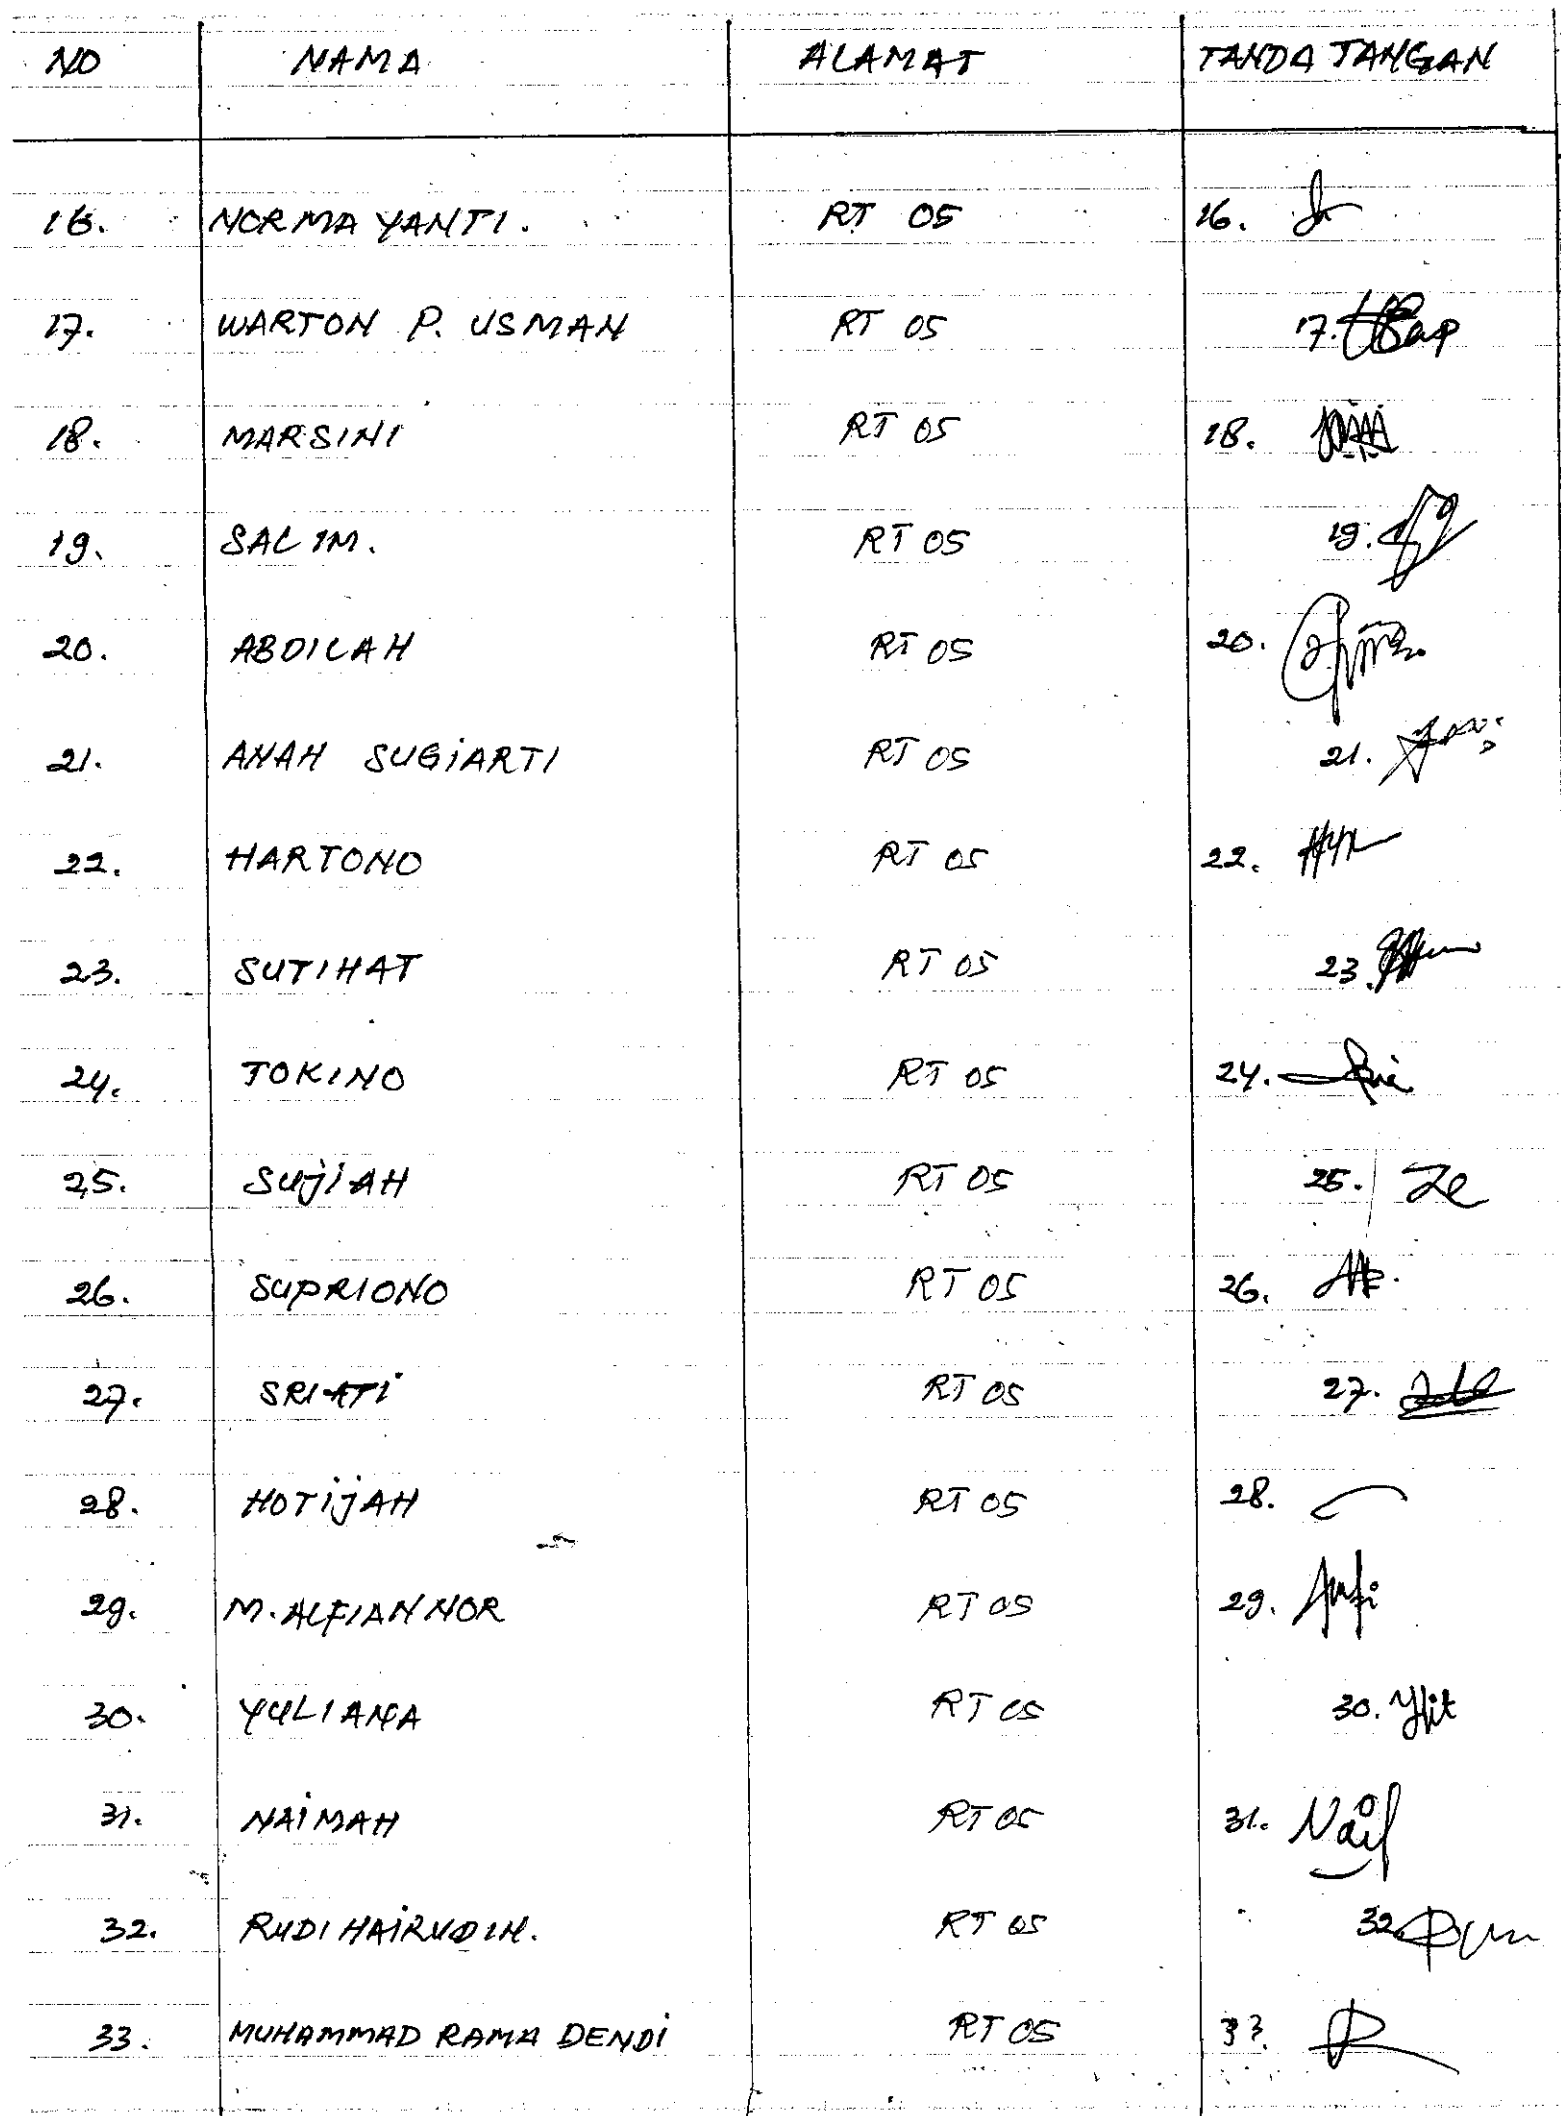 NO NAMA ALAMAT TANDA TANGAN
16. NORMA YANTI. RT 05 16.
17. WARTON P. USMAN RT 05 17.
18. MARSINI RT 05 18.
19. SALIM. RT 05 19.
20. ABDILAH RT 05 20.
21. ANAH SUGIARTI RT 05 21.
22. HARTONO RT 05 22.
23. SUTIHAT RT 05 23.
24. TOKINO RT 05 24.
25. SUJIAH RT 05 25.
26. SUPRIONO RT 05 26.
27. SRIATI RT 05 27.
28. HOTIJAH RT 05 28.
29. M. ALFIAN NOR RT 05 29.
30. YULIANA RT 05 30.
31. NAIMAH RT 05 31.
32. RUDI HAIRUDIN. RT 05 32
33. MUHAMMAD RAMA DENDI RT 05 33.